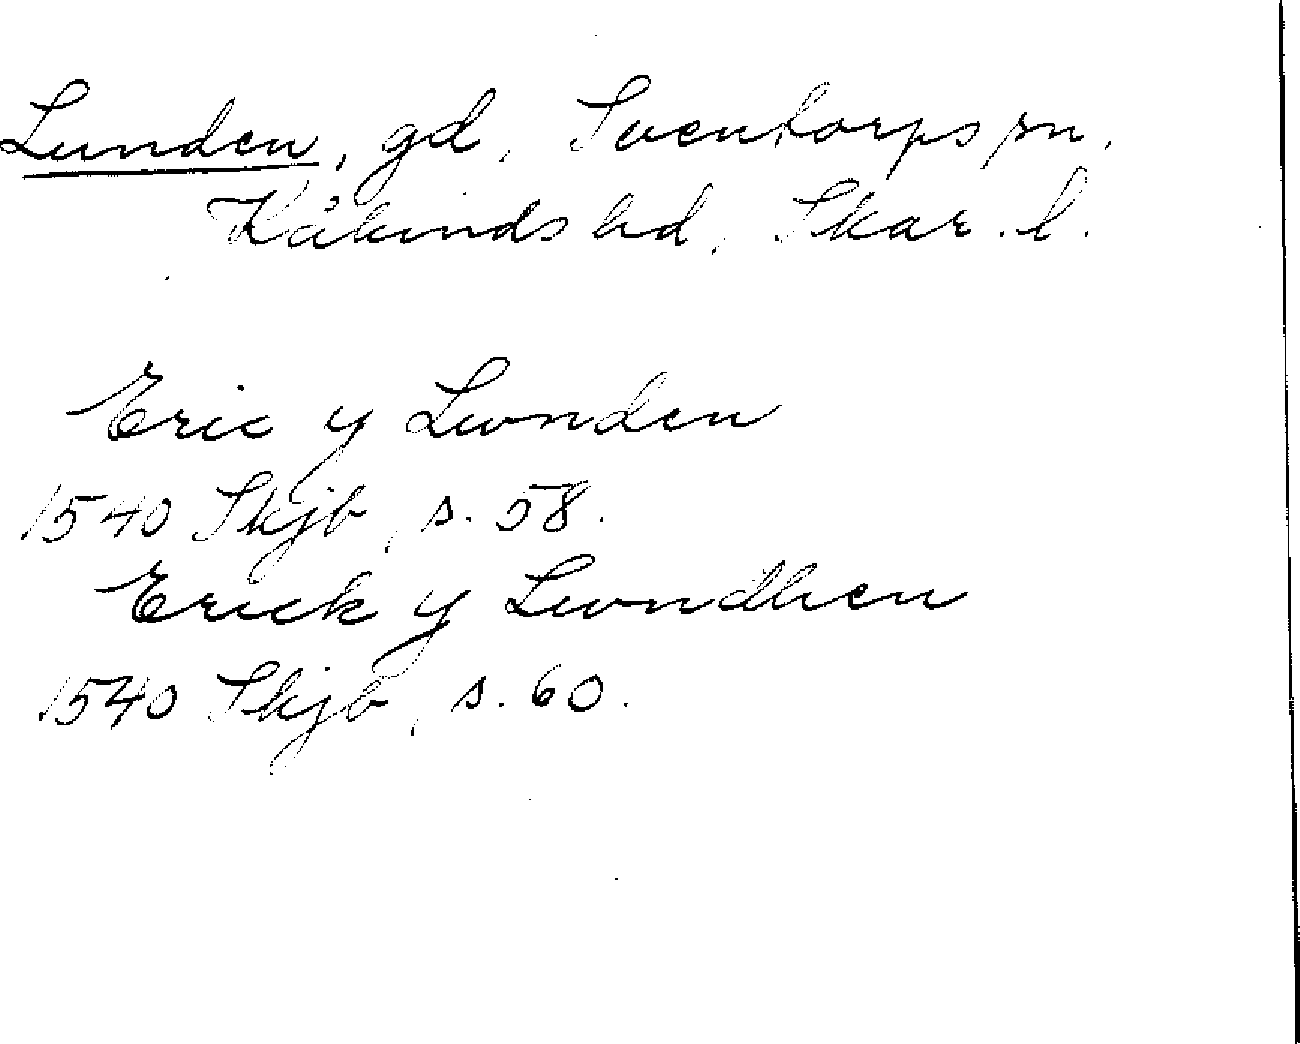 Lunden, gd, Sventorps sn,
Kåkinds hd, Skar. l.
Eric y Lwnden
1540 Skjb, s. 58.
Erick y Lwndhen
1540 Skjb, s. 60.